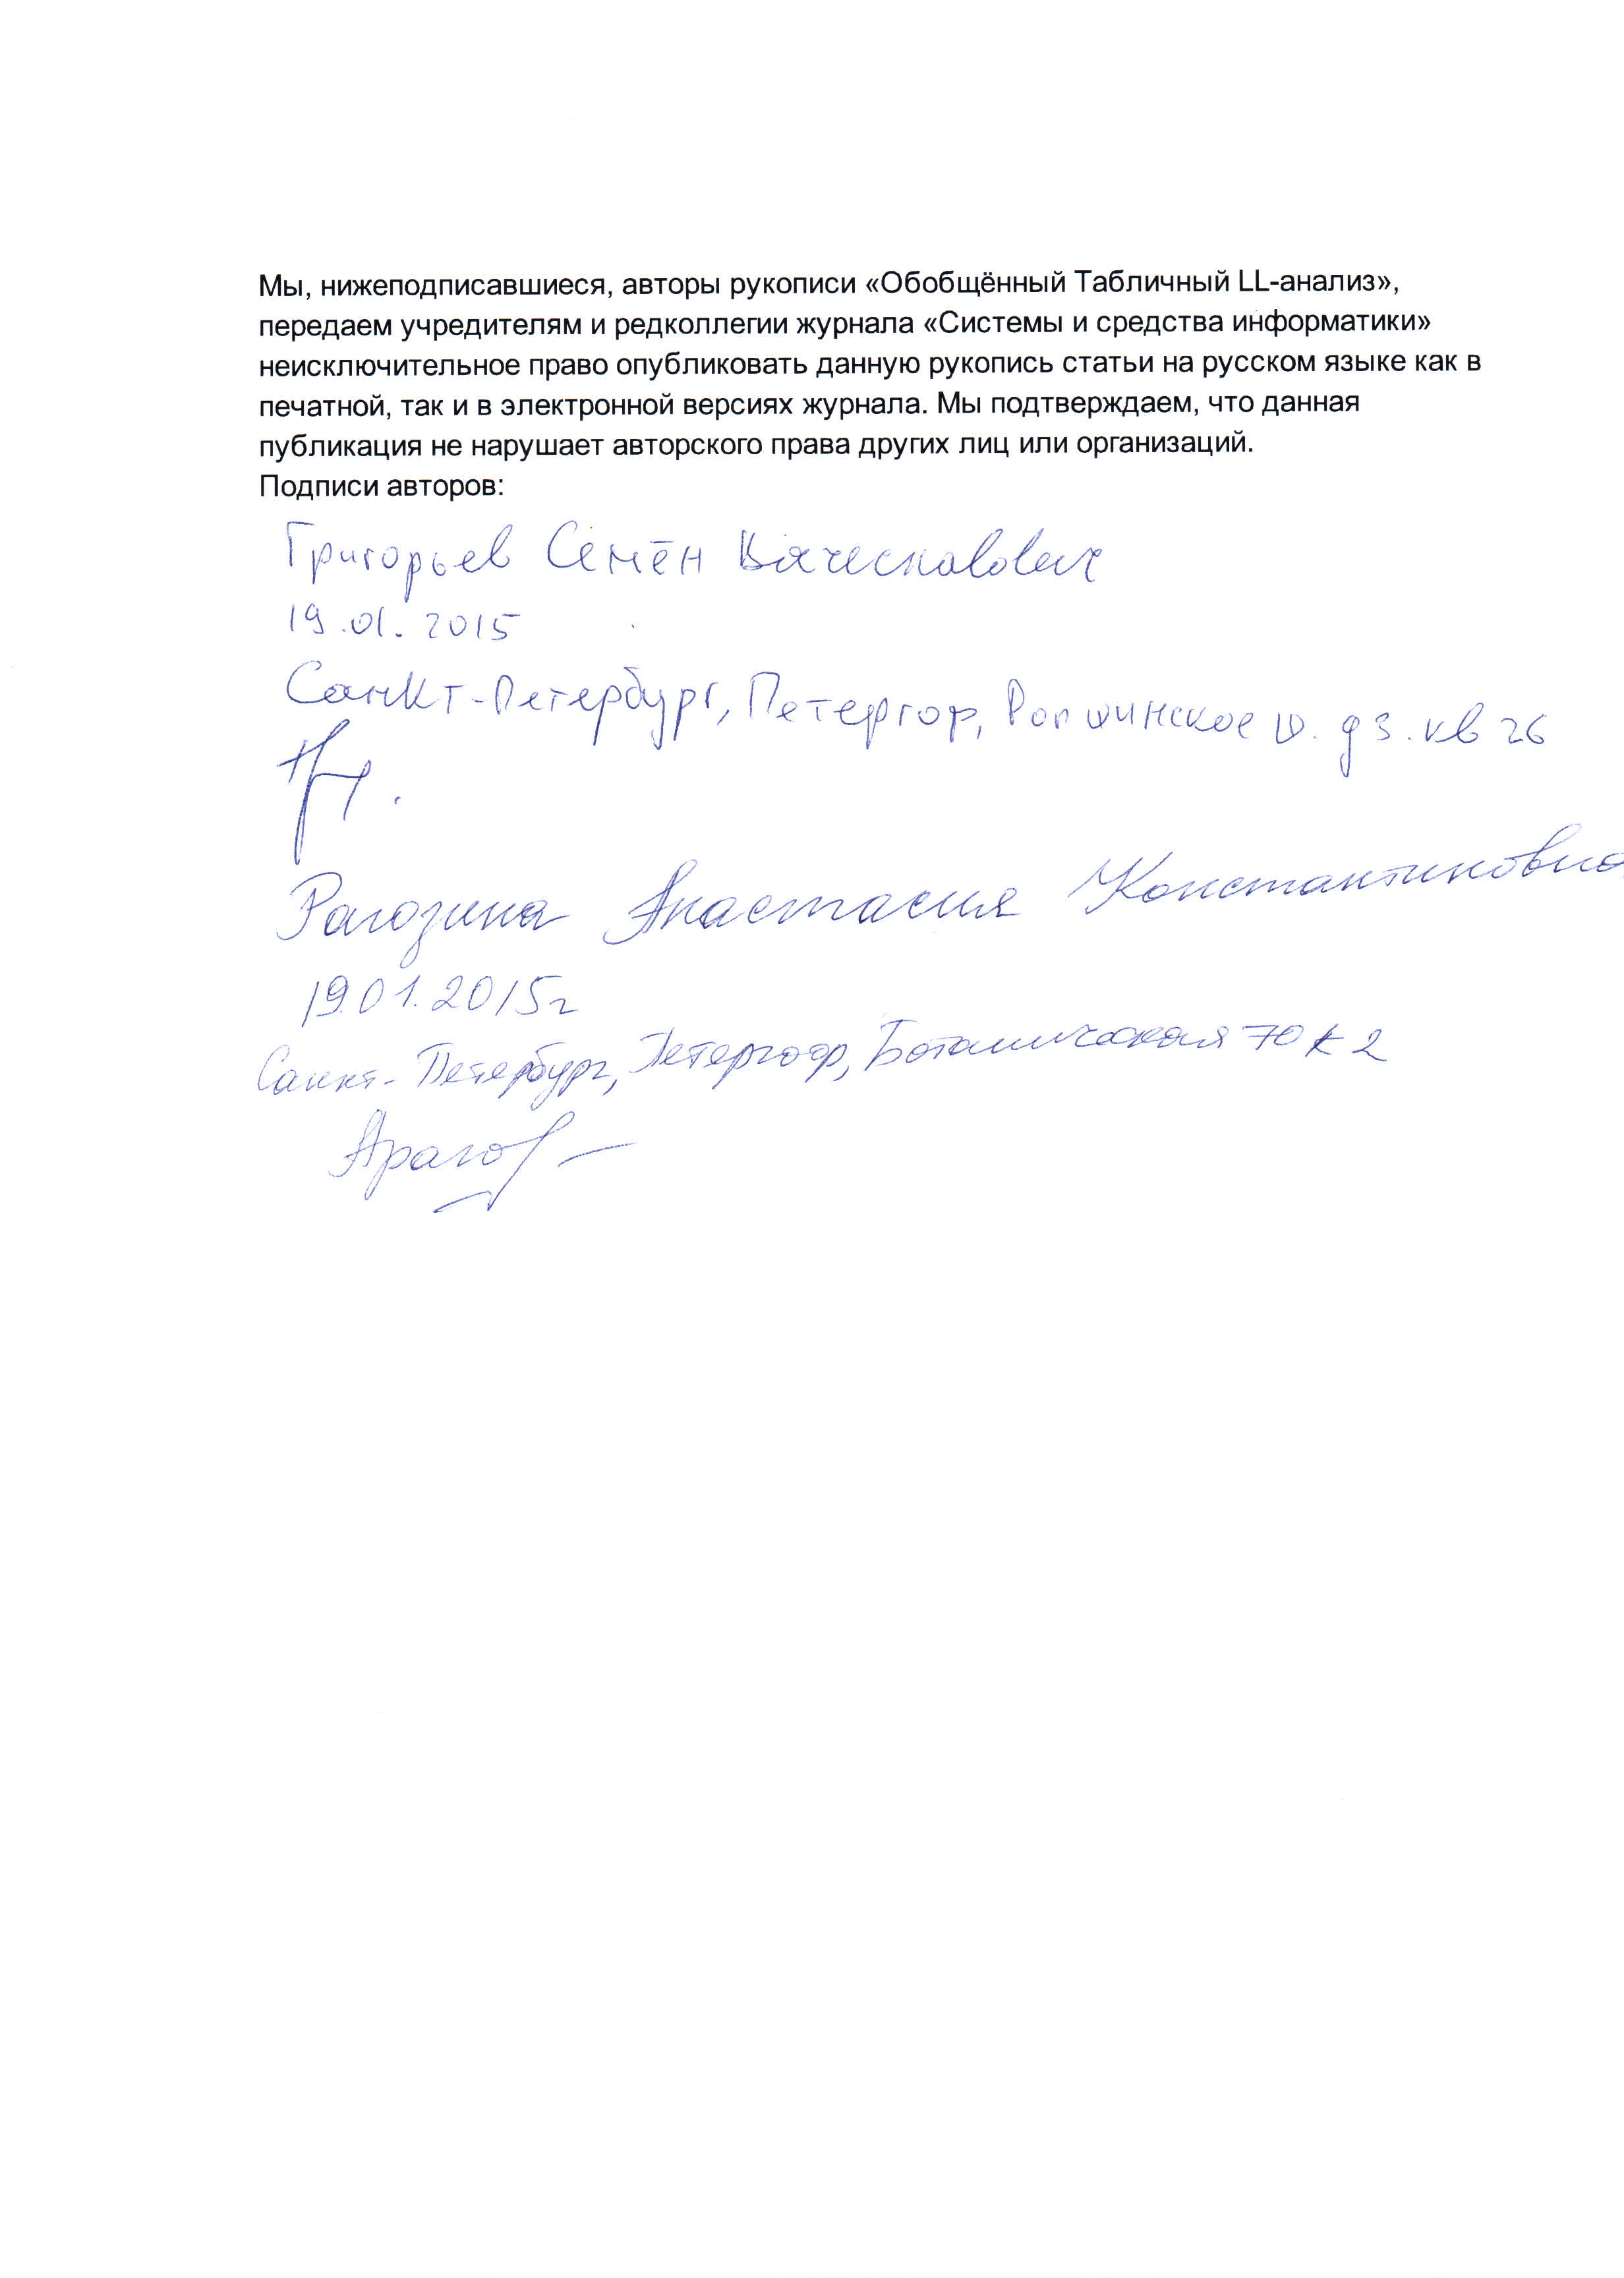 Мы, нижеподписавшиеся, авторы рукописи «Обобщённый Табличный LL-анализ»,
передаем учредителям и редколлегии журнала «Системы и средства информатики»
неисключительное право опубликовать данную рукопись статьи на русском языке как в
печатной, так и в электронной версиях журнала. Мы подтверждаем, что данная
публикация не нарушает авторского права других лиц или организаций.
Подписи авторов:
Григорьев Семён Вячеславович
19.01.2015
Санкт-Петербург, Петергоф, Ропшинское ш. д 3. кв 26
Рагозина Анастасия Константиновна
19.01.2015г
Санкт-Петербург, Петергоф, Ботаническая 70 к 2
Араго